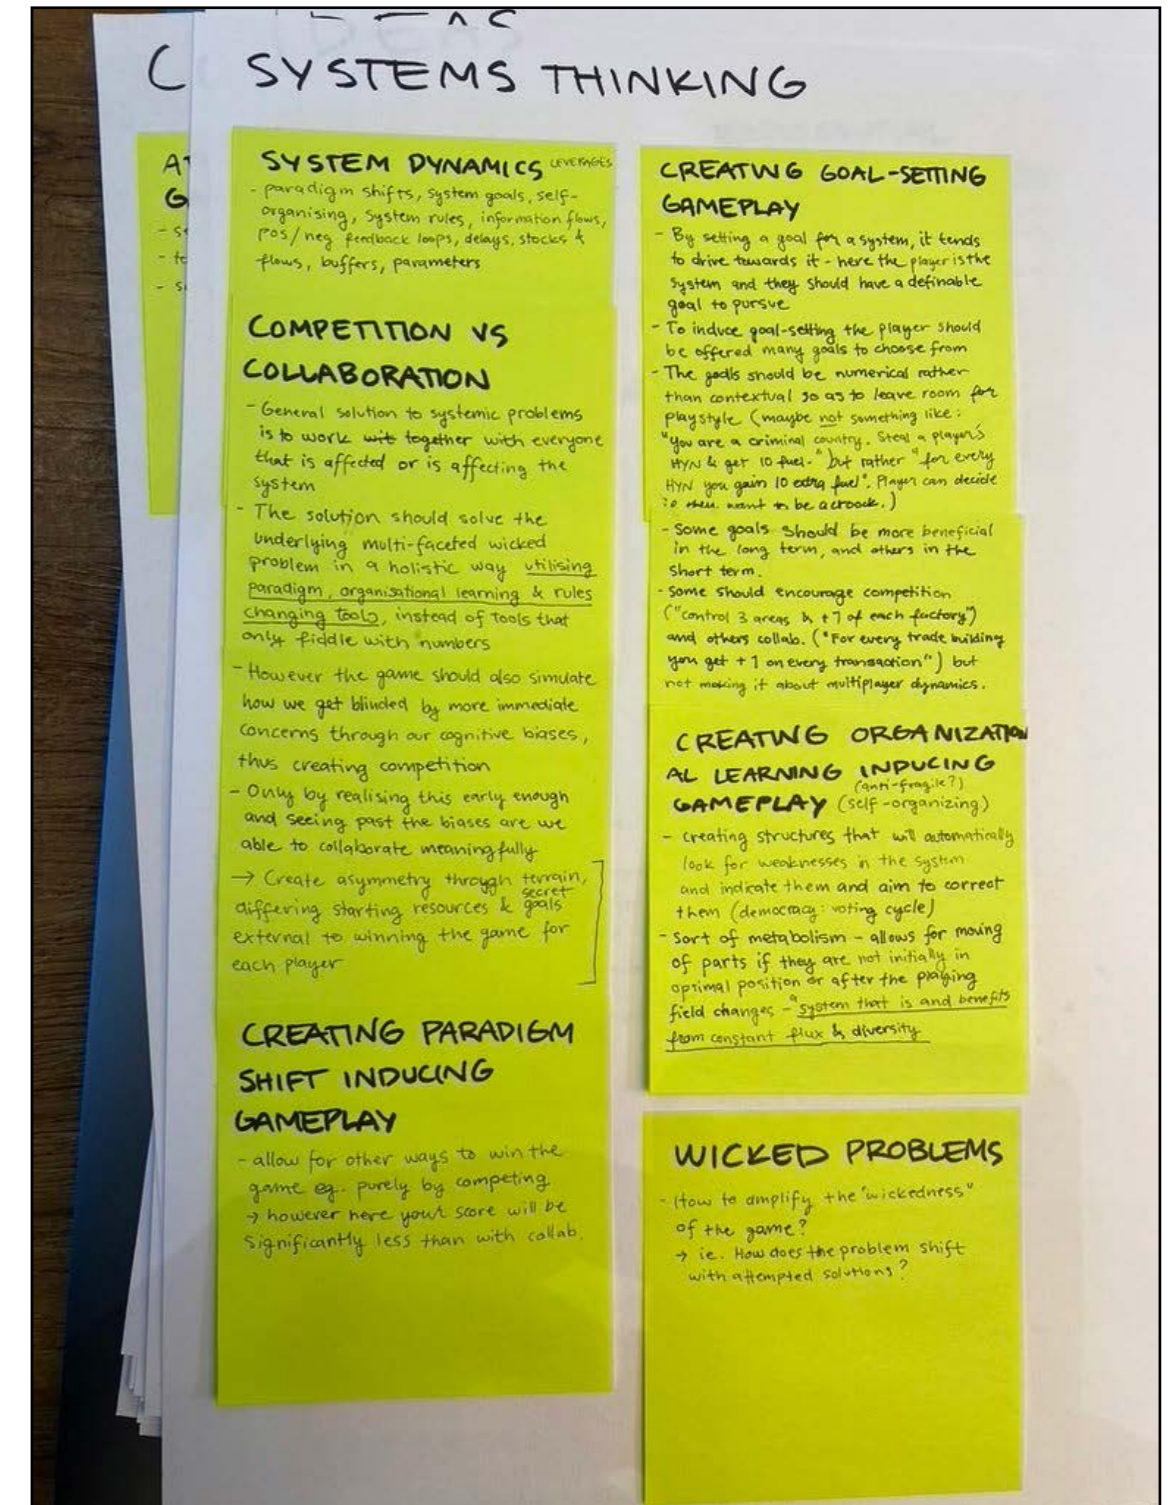 SYSTEMS THINKING
C
AT
G
SYSTEM DYNAMICS LEVERAGES
- paradigm shifts, system goals, self-
organising, system rules, information flows,
pos/neg feedback loops, delays, stocks &
flows, buffers, parameters
COMPETITION VS
COLLABORATION
- General solution to systemic problems
is to work wit together with everyone
that is affected or is affecting the
system
- The solution should solve the
underlying multi-faceted wicked
problem in a holistic way utilising
paradigm, organisational learning & rules
changing tools, instead of tools that
only fiddle with numbers
- However the game should also simulate
how we get blinded by more immediate
concerns through our cognitive biases,
thus creating competition
- Only by realising this early enough
and seeing past the biases are we
able to collaborate meaningfully
→ Create asymmetry through terrain,
differing starting resources & secret goals
external to winning the game for
each player
CREATING PARADIGM
SHIFT INDUCING
GAMEPLAY
- allow for other ways to win the
game eg. purely by competing
→ however here your score will be
significantly less than with collab.
CREATING GOAL-SETTING
GAMEPLAY
- By setting a goal for a system, it tends
to drive towards it - here the player is the
system and they should have a definable
goal to pursue
- To induce goal-setting the player should
be offered many goals to choose from
- The goals should be numerical rather
than contextual so as to leave room for
playstyle (maybe not something like:
"You are a criminal country. Steal a player's
HYN & get 10 fuel." but rather "for every
HYN you gain 10 extra fuel". Player can decide
if they want to be a crook.)
- Some goals should be more beneficial
in the long term, and others in the
short term.
- Some should encourage competition
("control 3 areas & +1 of each factory")
and others collab. ("For every trade building
you get +1 on every transaction") but
not making it about multiplayer dynamics.
CREATING ORGANIZATION
AL LEARNING INDUCING
(anti-fragile?)
GAMEPLAY (self-organizing)
- creating structures that will automatically
look for weaknesses in the system
and indicate them and aim to correct
them (democracy: voting cycle)
- Sort of metabolism - allows for moving
of parts if they are not initially in
optimal position or after the playing
field changes - "system that is and benefits
from constant flux & diversity
WICKED PROBLEMS
- How to amplify the "wickedness"
of the game?
→ ie. How does the problem shift
with attempted solutions?